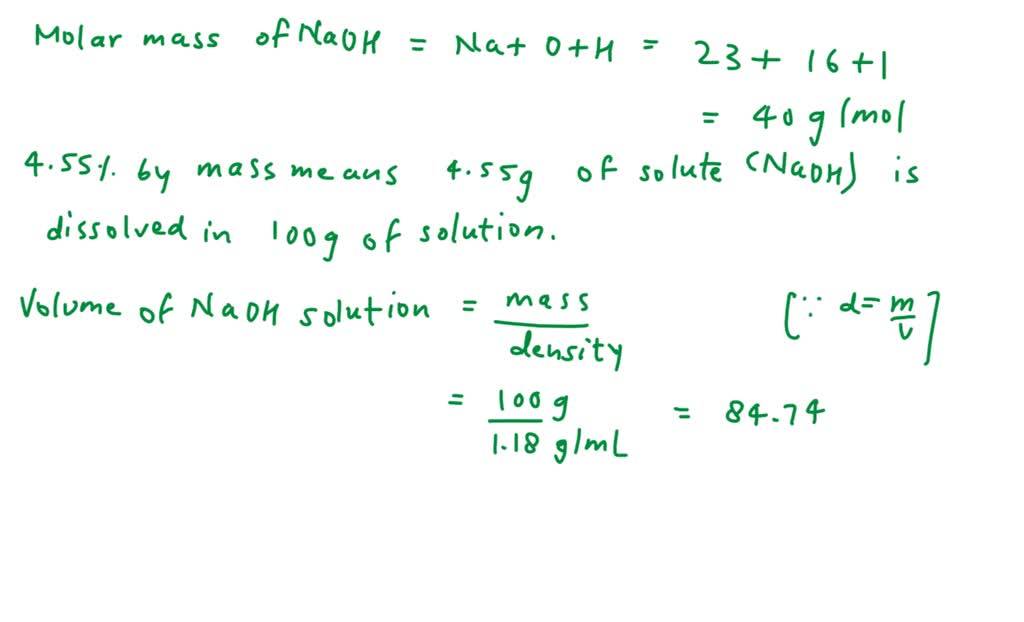 Molar mass of NaOH = Na + O + H = 23 + 16 + 1
= 40 g/mol
4.55% by mass means 4.55g of solute (NaOH) is
dissolved in 100g of solution.
Volume of NaOH solution = mass/density [∵ d = m/v]
= 100 g/1.18 g/mL = 84.74